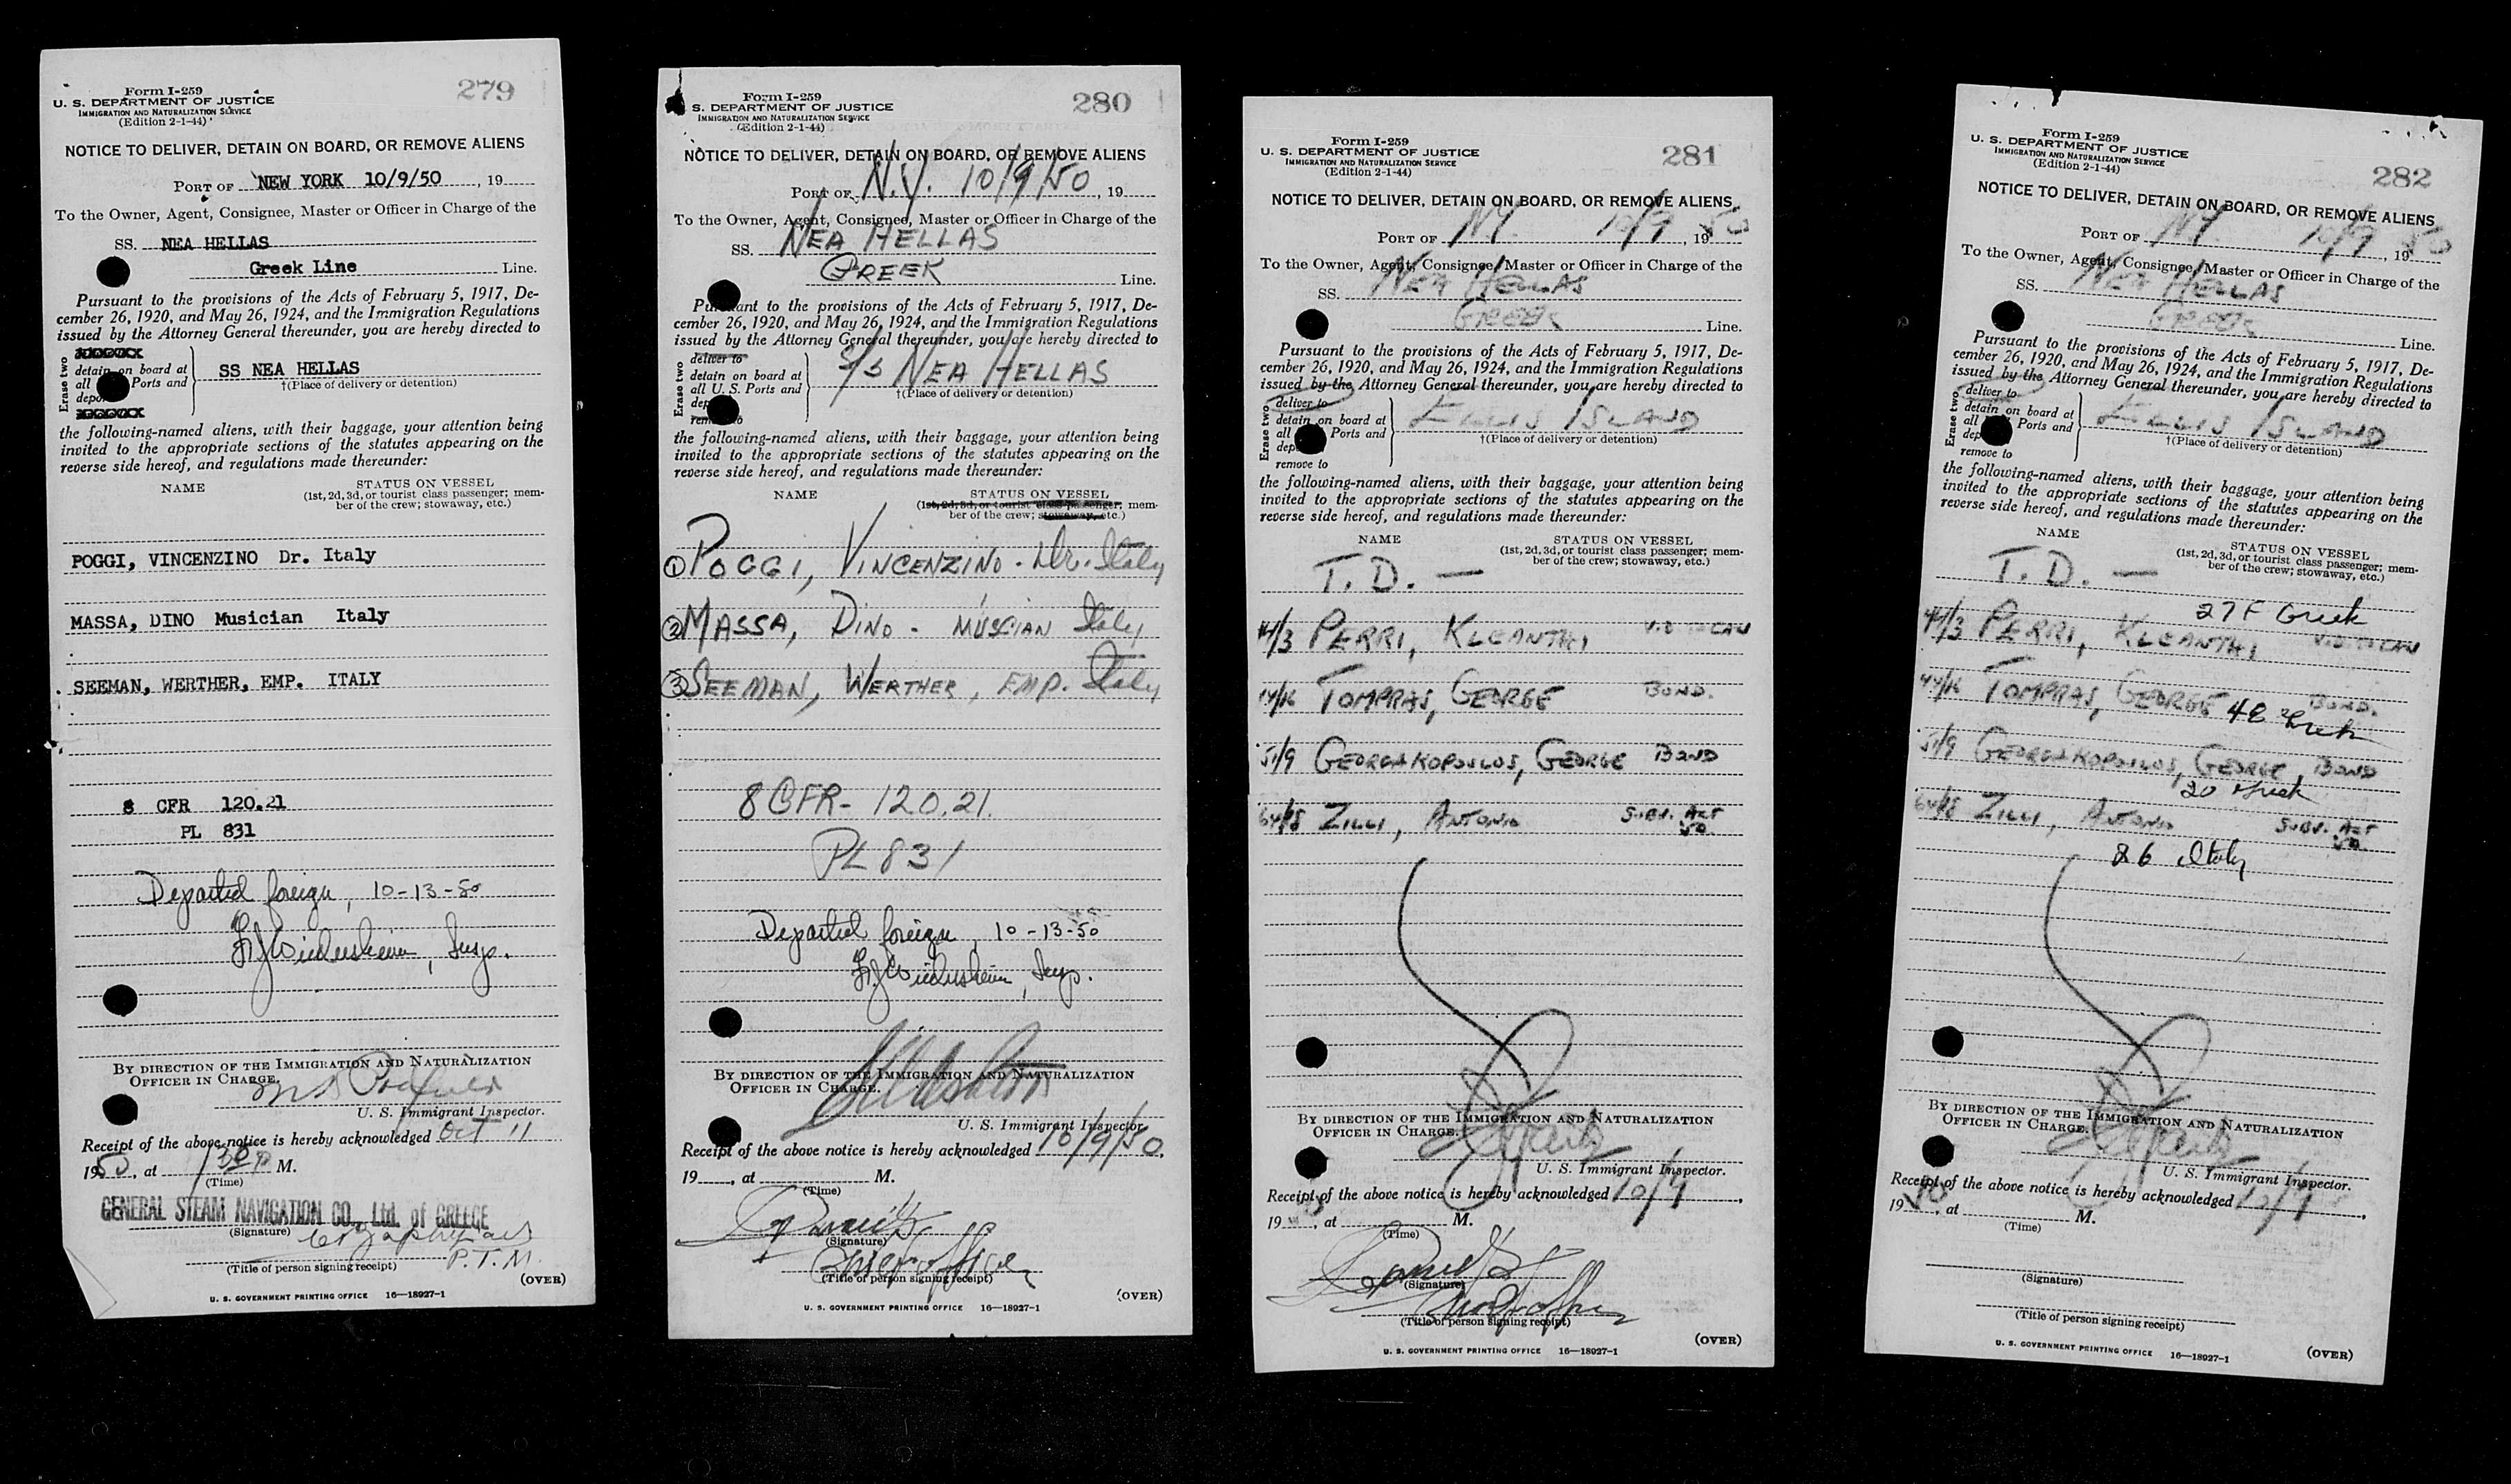 279
Form I-259
U. S. DEPARTMENT OF JUSTICE
IMMIGRATION AND NATURALIZATION SERVICE
(Edition 2-1-44)
NOTICE TO DELIVER, DETAIN ON BOARD, OR REMOVE ALIENS
PORT OF NEW YORK 10/9/50, 19
To the Owner, Agent, Consignee, Master or Officer in Charge of the
SS. NEA HELLAS
Greek Line Line.
Pursuant to the provisions of the Acts of February 5, 1917, De-
cember 26, 1920, and May 26, 1924, and the Immigration Regulations
issued by the Attorney General thereunder, you are hereby directed to
Erase two
detain on board at
all Ports and
SS NEA HELLAS
†(Place of delivery or detention)
the following-named aliens, with their baggage, your attention being
invited to the appropriate sections of the statutes appearing on the
reverse side hereof, and regulations made thereunder:
NAME STATUS ON VESSEL
(1st, 2d, 3d, or tourist class passenger; mem-
ber of the crew; stowaway, etc.)
POGGI, VINCENZINO Dr. Italy
MASSA, DINO Musician Italy
SEEMAN, WERTHER, EMP. ITALY
8 CFR 120.21
PL 831
Departed foreign, 10-13-50
Insp.
BY DIRECTION OF THE IMMIGRATION AND NATURALIZATION
OFFICER IN CHARGE.
U. S. Immigrant Inspector.
Receipt of the above notice is hereby acknowledged Oct 11
1950, at 1 30 P M.
(Time)
GENERAL STEAM NAVIGATION CO., Ltd. of GREECE
(Signature)
P.T.M.
(Title of person signing receipt)
(OVER)
U. S. GOVERNMENT PRINTING OFFICE 16—18927-1
280
Form I-259
S. DEPARTMENT OF JUSTICE
IMMIGRATION AND NATURALIZATION SERVICE
(Edition 2-1-44)
NOTICE TO DELIVER, DETAIN ON BOARD, OR REMOVE ALIENS
PORT OF N.Y. 10/9/50, 19
To the Owner, Agent, Consignee, Master or Officer in Charge of the
SS. NEA HELLAS
GREEK Line.
Pursuant to the provisions of the Acts of February 5, 1917, De-
cember 26, 1920, and May 26, 1924, and the Immigration Regulations
issued by the Attorney General thereunder, you are hereby directed to
Erase two
deliver to
detain on board at
all U. S. Ports and
S/S NEA HELLAS
†(Place of delivery or detention)
the following-named aliens, with their baggage, your attention being
invited to the appropriate sections of the statutes appearing on the
reverse side hereof, and regulations made thereunder:
NAME STATUS ON VESSEL
(1st, 2d, 3d, or tourist class passenger; mem-
ber of the crew; stowaway, etc.)
① POGGI, VINCENZINO. Dr. Italy
② MASSA, DINO - MUSCIAN Italy
③ SEEMAN, WERTHER, EMP. Italy
8 CFR- 120.21.
PL 831
Departed foreign, 10-13-50
Insp.
BY DIRECTION OF THE IMMIGRATION AND NATURALIZATION
OFFICER IN CHARGE.
U. S. Immigrant Inspector.
Receipt of the above notice is hereby acknowledged 10/9/50.
19, at M.
(Time)
(Signature)
Chief officer
(Title of person signing receipt)
(OVER)
U. S. GOVERNMENT PRINTING OFFICE 16—18927-1
281
Form I-259
U. S. DEPARTMENT OF JUSTICE
IMMIGRATION AND NATURALIZATION SERVICE
(Edition 2-1-44)
NOTICE TO DELIVER, DETAIN ON BOARD, OR REMOVE ALIENS
PORT OF N.Y. 10/9, 1950
To the Owner, Agent, Consignee, Master or Officer in Charge of the
SS. NEA HELLAS
GREEK Line.
Pursuant to the provisions of the Acts of February 5, 1917, De-
cember 26, 1920, and May 26, 1924, and the Immigration Regulations
issued by the Attorney General thereunder, you are hereby directed to
Erase two
deliver to
detain on board at
all Ports and
remove to
ELLIS ISLAND
†(Place of delivery or detention)
the following-named aliens, with their baggage, your attention being
invited to the appropriate sections of the statutes appearing on the
reverse side hereof, and regulations made thereunder:
NAME STATUS ON VESSEL
(1st, 2d, 3d, or tourist class passenger; mem-
ber of the crew; stowaway, etc.)
T. D. —
44/3 PERRI, KLEANTHI
44/16 TOMPRAS, GEORGE BOND.
51/9 GEORGAKOPOULOS, GEORGE BOND
64/18 ZILLI, ANTONIO SUBV. ACT 50
BY DIRECTION OF THE IMMIGRATION AND NATURALIZATION
OFFICER IN CHARGE.
U. S. Immigrant Inspector.
Receipt of the above notice is hereby acknowledged 10/9,
19, at M.
(Time)
(Signature)
Chief officer
(Title of person signing receipt)
(OVER)
U. S. GOVERNMENT PRINTING OFFICE 16—18927-1
282
Form I-259
U. S. DEPARTMENT OF JUSTICE
IMMIGRATION AND NATURALIZATION SERVICE
(Edition 2-1-44)
NOTICE TO DELIVER, DETAIN ON BOARD, OR REMOVE ALIENS
PORT OF N.Y. 10/9, 1950
To the Owner, Agent, Consignee, Master or Officer in Charge of the
SS. NEA HELLAS
GREEK Line.
Pursuant to the provisions of the Acts of February 5, 1917, De-
cember 26, 1920, and May 26, 1924, and the Immigration Regulations
issued by the Attorney General thereunder, you are hereby directed to
Erase two
deliver to
detain on board at
all Ports and
remove to
ELLIS ISLAND
†(Place of delivery or detention)
the following-named aliens, with their baggage, your attention being
invited to the appropriate sections of the statutes appearing on the
reverse side hereof, and regulations made thereunder:
NAME STATUS ON VESSEL
(1st, 2d, 3d, or tourist class passenger; mem-
ber of the crew; stowaway, etc.)
T. D. —
27 F Greek
44/3 PERRI, KLEANTHI
44/16 TOMPRAS, GEORGE BOND.
48 Greek
51/9 GEORGAKOPOULOS, GEORGE, BOND
20 Greek
64/18 ZILLI, ANTONIO SUBV. ACT 50
26 Italy
BY DIRECTION OF THE IMMIGRATION AND NATURALIZATION
OFFICER IN CHARGE.
U. S. Immigrant Inspector.
Receipt of the above notice is hereby acknowledged 10/9,
1950, at M.
(Time)
(Signature)
(Title of person signing receipt)
(OVER)
U. S. GOVERNMENT PRINTING OFFICE 16—18927-1